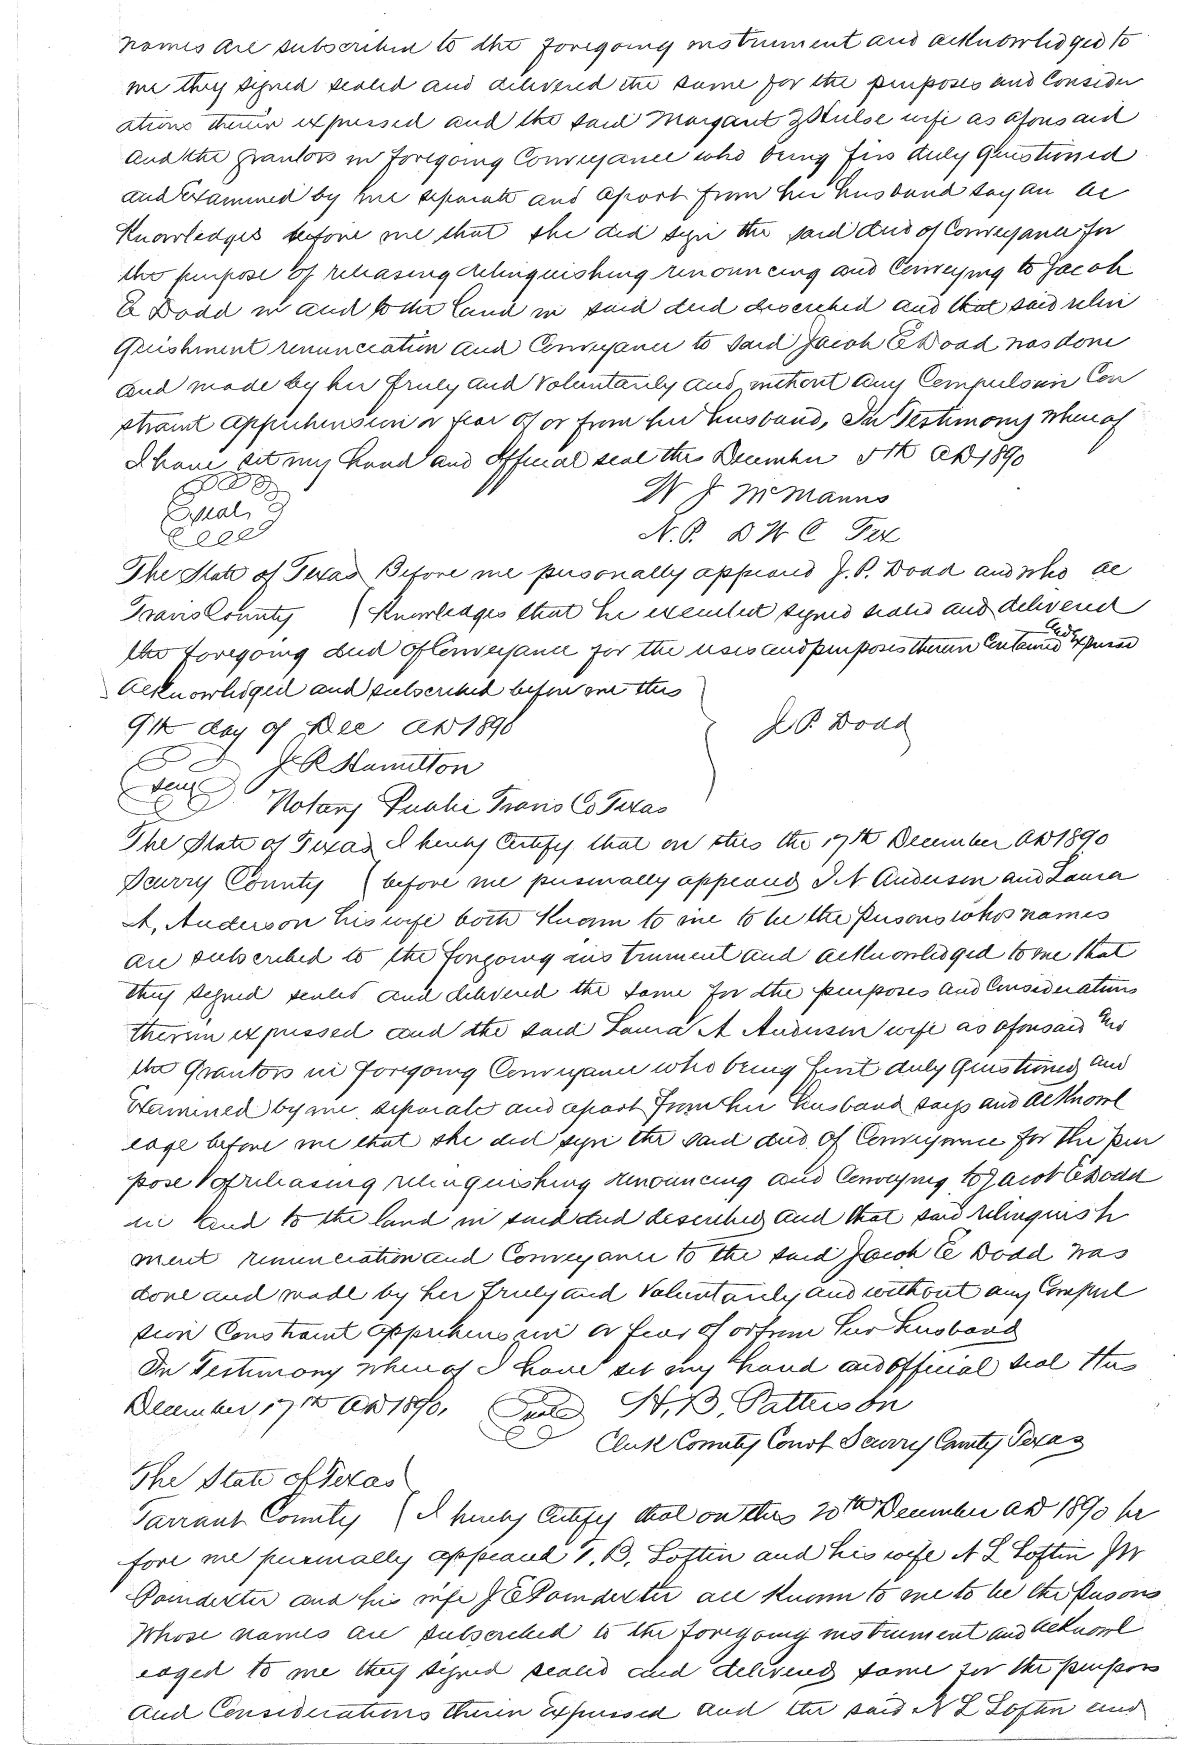 names are subscribed to the foregoing instrument and acknowledged to
me they signed sealed and delivered the same for the purposes and Consider
ations therein expressed and the said Margaret Hulse wife as aforesaid
and the grantors in foregoing Conveyance who being first duly questioned
and Examined by me separate and apart from her husband say an ac
Knowledges before me that she did sign the said deed of Conveyance for
the purpose of releasing relinquishing renouncing and Conveying to Jacob
E Dodd in and to the land in said deed described and that said relin
quishment renunciation and Conveyance to said Jacob E Dodd was done
and made by her freely and Voluntarily and without any Compulsion Con
straint apprehension or fear of or from her husband. In Testimony whereof
I have set my hand and official seal this December 5th AD 1890
Seal
W J McManus
N.P. D W C Tex
The State of Texas Before me personally appeared J.P. Dodd and who ac
Travis County ( Knowledges that he executed signed sealed and delivered
the foregoing deed of Conveyance for the uses and purposes therein Contained and Expressed
Acknowledged and subscribed before me this
9th day of Dec AD 1890
J P Dodd
J R Hamilton
Seal
Notary Public Travis Co Texas
The State of Texas I hereby Certify that on this the 17th December AD 1890
Scurry County ( before me personally appeared I N Anderson and Laura
A, Anderson his wife both Known to me to be the Persons whos names
are subscribed to the foregoing instrument and acknowledged to me that
they signed sealed and delivered the same for the purposes and Considerations
therein expressed and the said Laura A Anderson wife as aforesaid and
the Grantors in foregoing Conveyance who being first duly Questioned and
Examined by me separate and apart from her husband says and acknowl
edge before me that she did sign the said deed of Conveyance for the pur
pose of releasing relinquishing renouncing and Conveying to Jacob E Dodd
in and to the land in said deed described and that said relinquish
ment renunciation and Conveyance to the said Jacob E Dodd was
done and made by her freely and Voluntarily and without any Compul
sion Constraint apprehension or fear of or from her husband
In Testimony whereof I have set my hand and official seal this
December 17th AD 1890. Seal H. B. Patterson
Clerk County Court Scurry County Texas
The State of Texas
Tarrant County ( I hereby Certify that on this 20th December AD 1890 be
fore me personally appeared T. B. Loftin and his wife N L Loftin JW
Poindexter and his wife J E Poindexter all Known to me to be the Persons
Whose names are subscribed to the foregoing instrument and Acknowl
edged to me they signed sealed and delivered same for the purposes
and Considerations therein Expressed and the said N L Loftin and